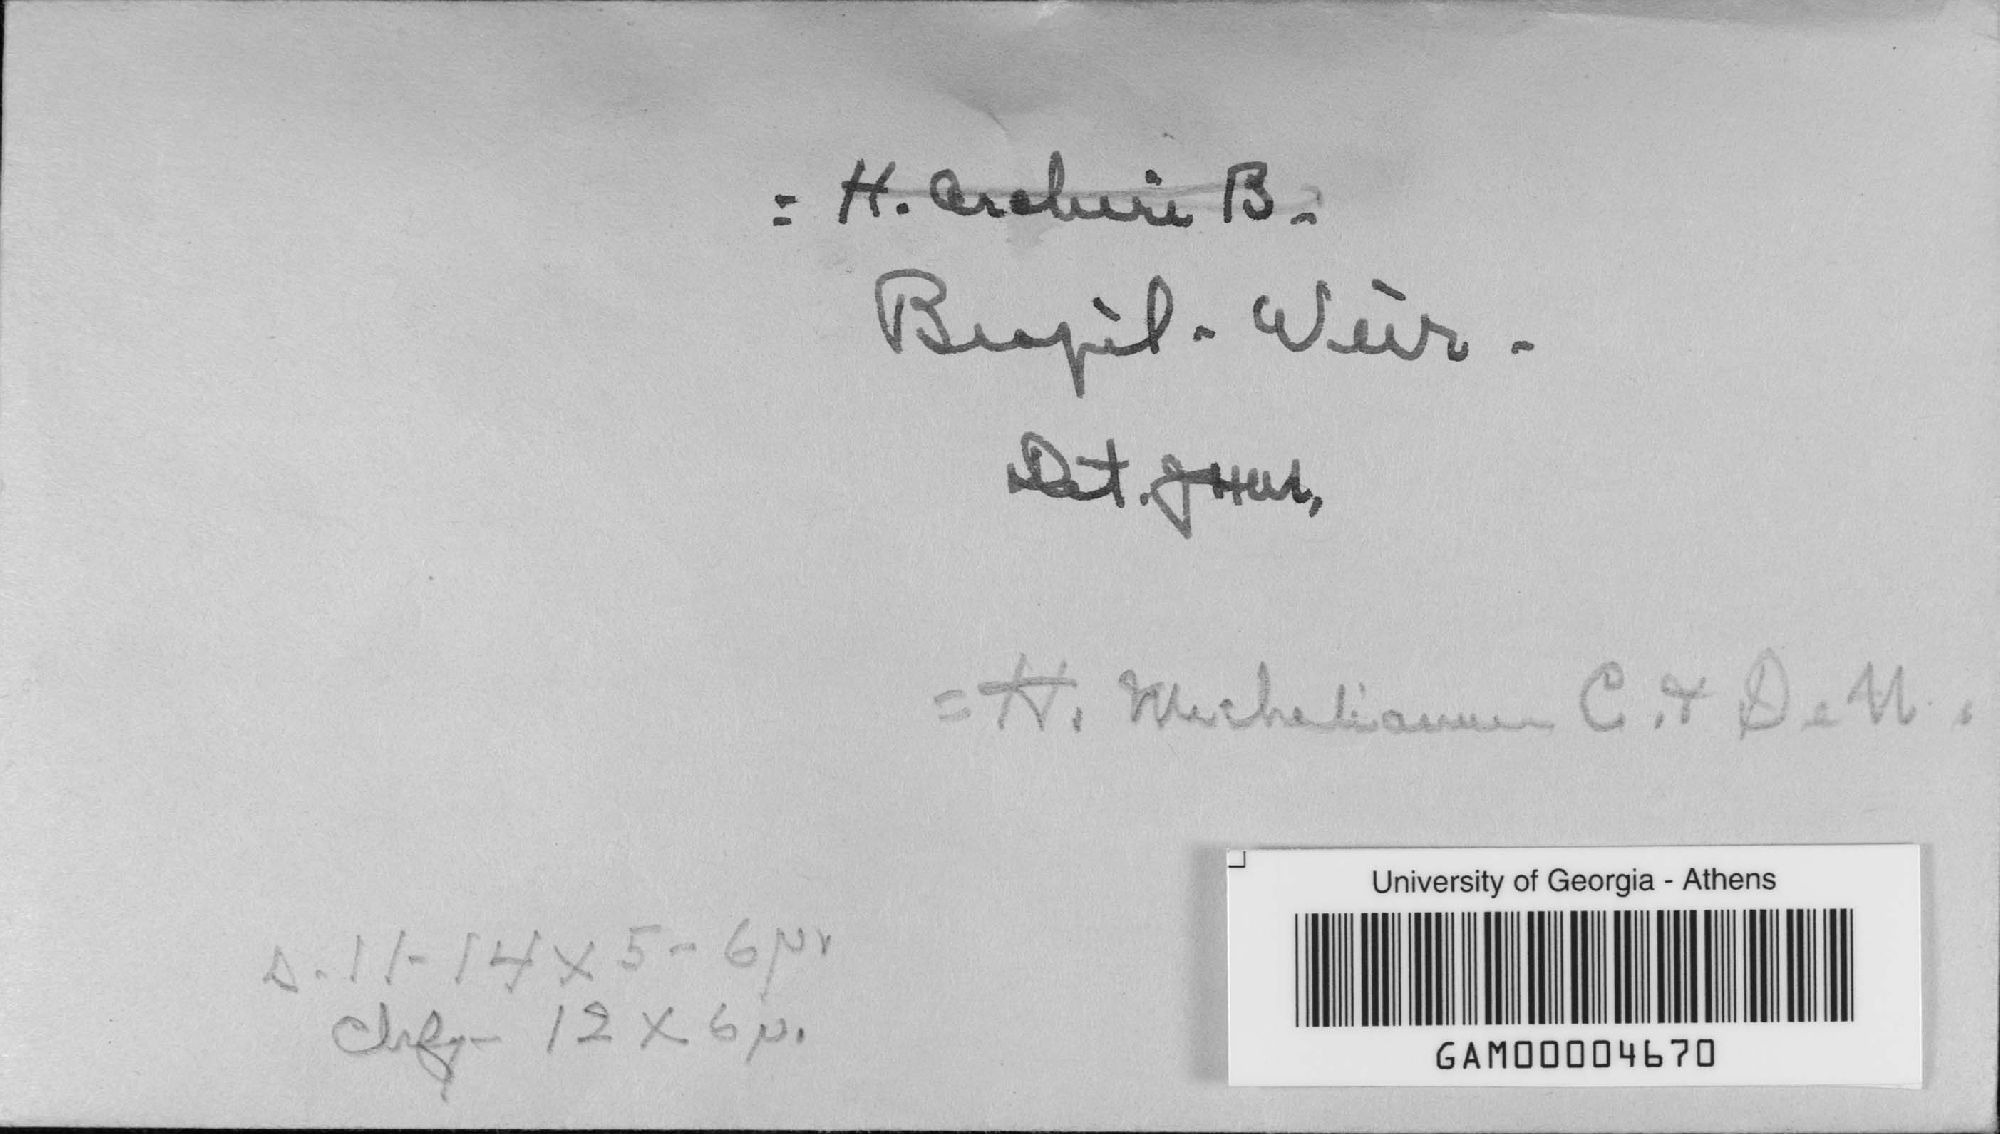 = H. Archeri B.
Brazil - Weir -
Det. J H H,
= H. Michelianum C. & De N.
s. 11-14 x 5-6 µ
chfly - 12 x 6 µ.
University of Georgia - Athens
GAM00004670